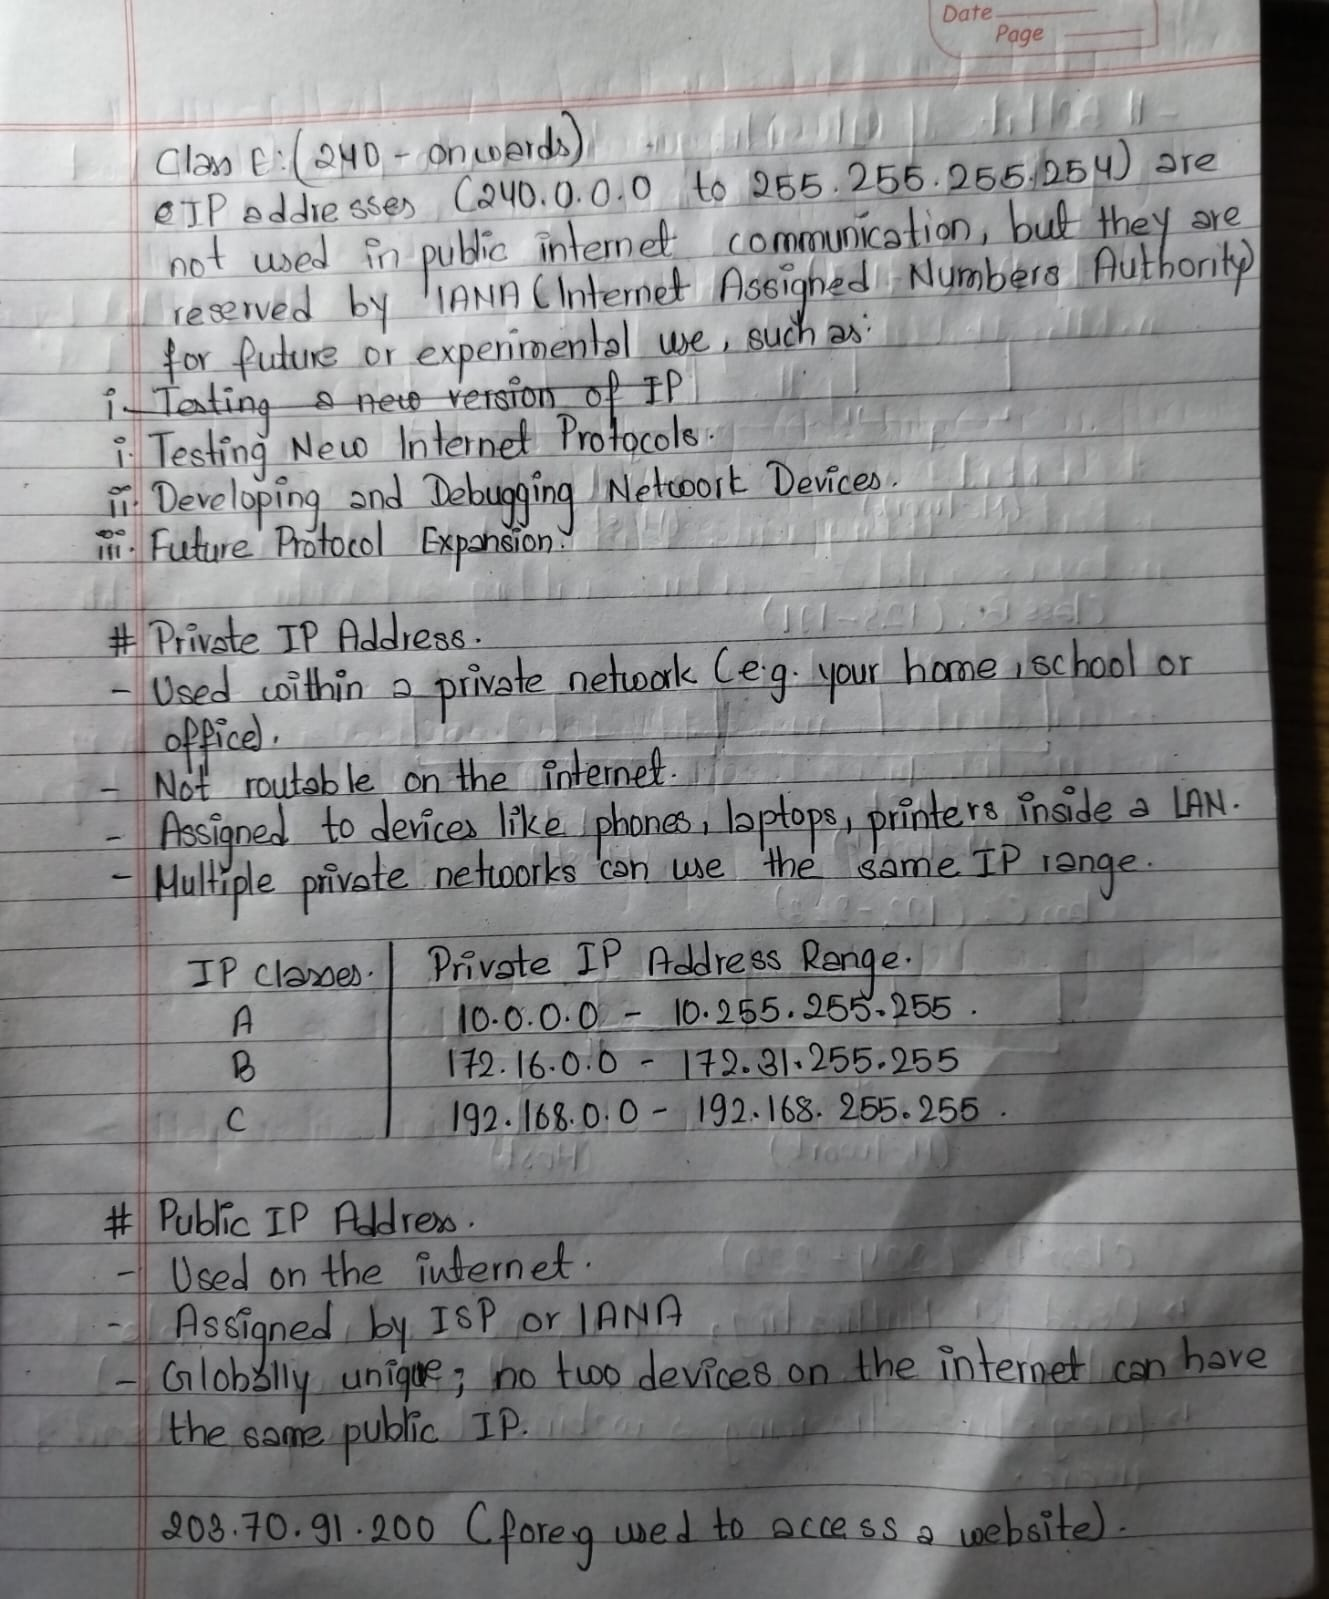 Date
Page
Class E: (240 - onwards)
IP addresses (240.0.0.0 to 255.255.255.254) are
not used in public internet communication, but they are
reserved by IANA (Internet Assigned Numbers Authority)
for future or experimental use, such as:
i. Testing a new version of IP
i. Testing New Internet Protocols.
ii. Developing and Debugging Network Devices.
iii. Future Protocol Expansion.
# Private IP Address.
- Used within a private network (e.g. your home, school or
office).
- Not routable on the internet.
- Assigned to devices like phones, laptops, printers inside a LAN.
- Multiple private networks can use the same IP range.
IP Classes. | Private IP Address Range.
A | 10.0.0.0 - 10.255.255.255.
B | 172.16.0.0 - 172.31.255.255
C | 192.168.0.0 - 192.168.255.255.
# Public IP Address.
- Used on the internet.
- Assigned by ISP or IANA
- Globally unique; no two devices on the internet can have
the same public IP.
203.70.91.200 (for eg used to access a website).